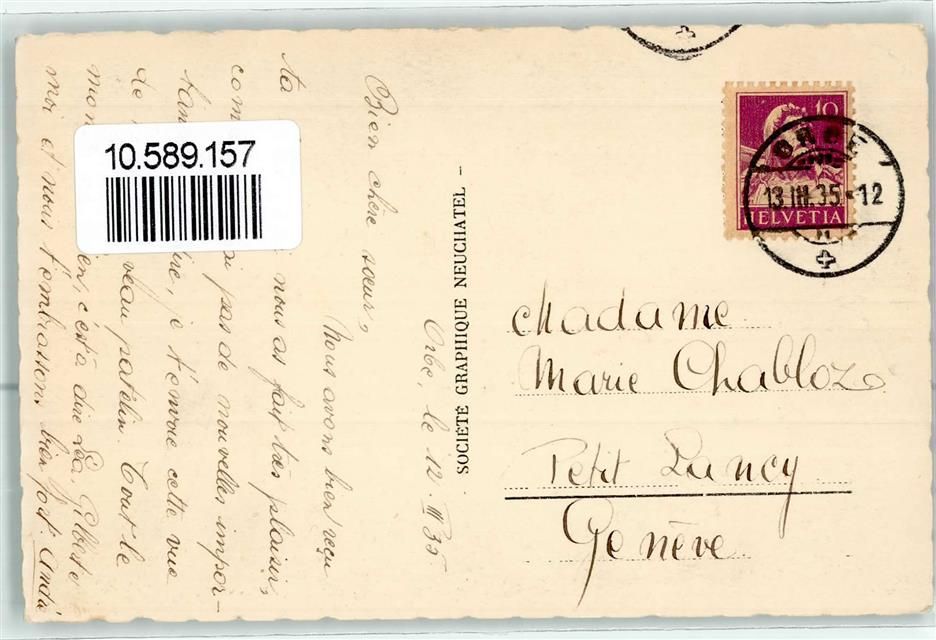 Orbe, le 12 III 35
Bien chère sœur,
Nous avons bien reçu
ta nous as fait très plaisir,
com si pas de nouvelles impor-
tan re, je t'envoie cette vue
de veau patelin. Tout le
mon en, c'est à dire Léa, Gilberte
moi et nous t'embrassons bien fort. André
10.589.157
SOCIÉTÉ GRAPHIQUE NEUCHATEL
10
HELVETIA
ORBE
13.III.35-12
Madame
Marie Chabloz
Petit Lancy
Genève